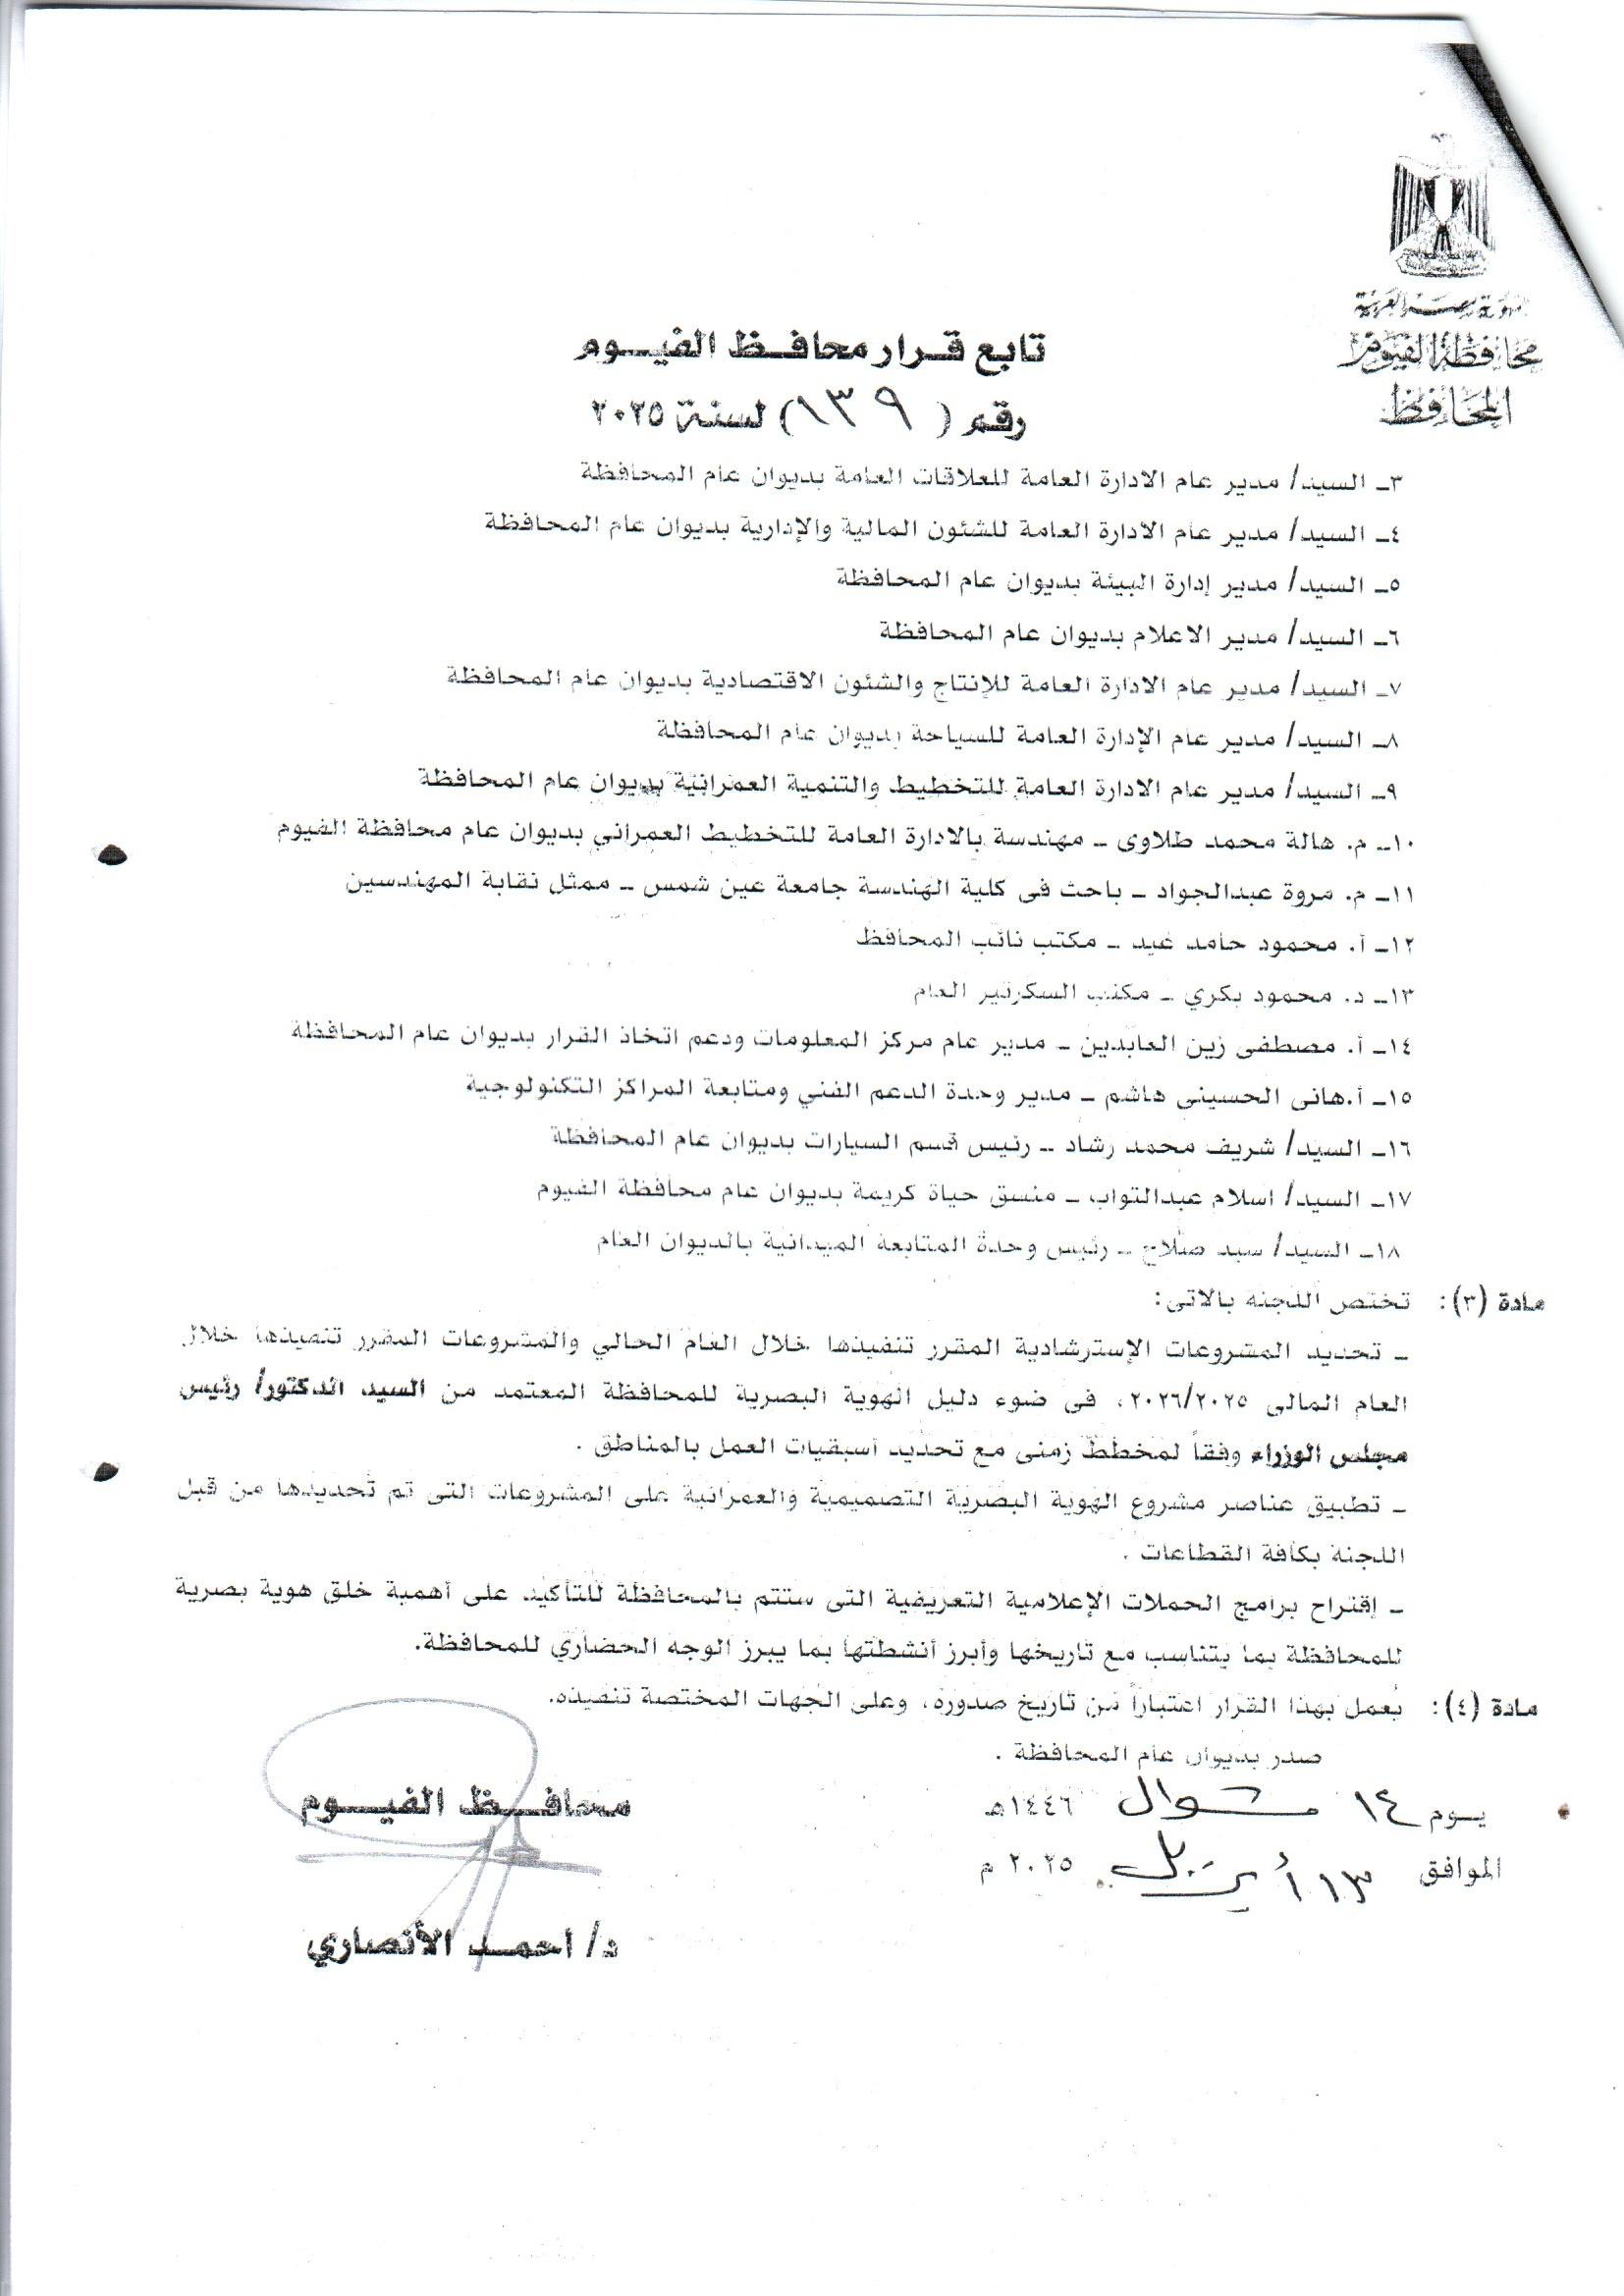 جمهورية مصر العربية
محافظة الفيوم
المحافظ
تابع قرار محافظ الفيوم
رقم ( ١٣٩ ) لسنة ٢٠٢٥
٣ـ السيد/ مدير عام الادارة العامة للعلاقات العامة بديوان عام المحافظة
٤ـ السيد/ مدير عام الادارة العامة للشئون المالية والإدارية بديوان عام المحافظة
٥ـ السيد/ مدير إدارة البيئة بديوان عام المحافظة
٦ـ السيد/ مدير الاعلام بديوان عام المحافظة
٧ـ السيد/ مدير عام الادارة العامة للإنتاج والشئون الاقتصادية بديوان عام المحافظة
٨ـ السيد/ مدير عام الإدارة العامة للسياحة بديوان عام المحافظة
٩ـ السيد/ مدير عام الادارة العامة للتخطيط والتنمية العمرانية بديوان عام المحافظة
١٠ـ م. هالة محمد طلاوى ـ مهندسة بالادارة العامة للتخطيط العمراني بديوان عام محافظة الفيوم
١١ـ م. مروة عبدالجواد ـ باحث فى كلية الهندسة جامعة عين شمس ـ ممثل نقابة المهندسين
١٢ـ أ. محمود حامد عيد ـ مكتب نائب المحافظ
١٣ـ د. محمود بكري ـ مكتب السكرتير العام
١٤ـ أ. مصطفى زين العابدين ـ مدير عام مركز المعلومات ودعم اتخاذ القرار بديوان عام المحافظة
١٥ـ أ.هانى الحسينى هاشم ـ مدير وحدة الدعم الفني ومتابعة المراكز التكنولوجية
١٦ـ السيد/ شريف محمد رشاد ـ رئيس قسم السيارات بديوان عام المحافظة
١٧ـ السيد/ اسلام عبدالتواب ـ منسق حياة كريمة بديوان عام محافظة الفيوم
١٨ـ السيد/ سيد صلاح ـ رئيس وحدة المتابعة الميدانية بالديوان العام
مادة (٣): تختص اللجنه بالاتى:
ـ تحديد المشروعات الإسترشادية المقرر تنفيذها خلال العام الحالي والمشروعات المقرر تنفيذها خلال
العام المالى ٢٠٢٦/٢٠٢٥، فى ضوء دليل الهوية البصرية للمحافظة المعتمد من السيد الدكتور/ رئيس
مجلس الوزراء وفقاً لمخطط زمنى مع تحديد أسبقيات العمل بالمناطق .
ـ تطبيق عناصر مشروع الهوية البصرية التصميمية والعمرانية على المشروعات التى تم تحديدها من قبل
اللجنة بكافة القطاعات .
ـ إقتراح برامج الحملات الإعلامية التعريفية التى ستتم بالمحافظة للتأكيد على أهمية خلق هوية بصرية
للمحافظة بما يتناسب مع تاريخها وأبرز أنشطتها بما يبرز الوجه الحضاري للمحافظة.
مادة (٤): يعمل بهذا القرار اعتباراً من تاريخ صدوره، وعلى الجهات المختصة تنفيذه.
صدر بديوان عام المحافظة .
يوم ١٤ شوال ١٤٤٦هـ
الموافق ١٣ أبريل ٢٠٢٥ م
محافظ الفيوم
د/ احمد الأنصاري